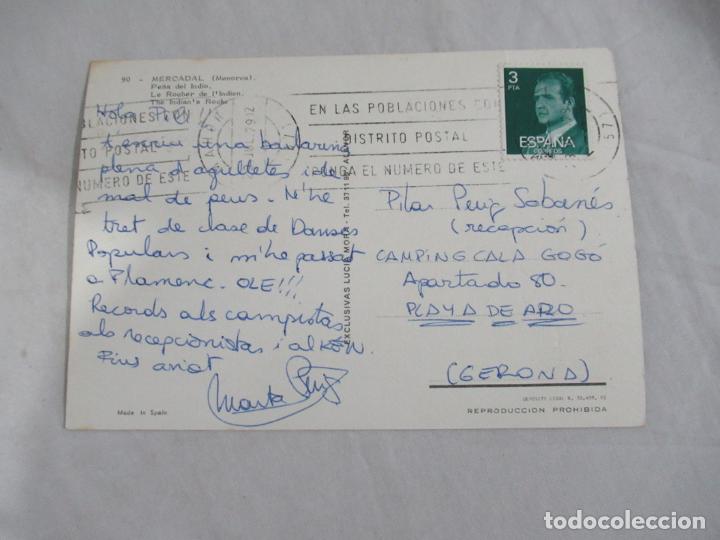 90 - MERCADAL (Menorca).
Peña del Indio.
Le Rocher de l'Indien.
The Indian's Rocher
Hola Pili!!
T'escriu una bailarina
plena d'agulletes i de
mal de peus. M'he
tret de clase de Danses
Populars i m'he passat
a Flamenc. OLE!!!
Records als campistas
als recepcionistas i al KEN.
Fins aviat
Marta Puig
Made in Spain
EXCLUSIVAS LUCIA MORA - Tel. ALAYOR
EN LAS POBLACIONES CON
DISTRITO POSTAL
PONGA EL NUMERO DE ESTE
BLACIONES CON
TO POSTAL
NUMERO DE ESTE
3
PTA
ESPAÑA
CORREOS
Pilar Puig Sabanés
(recepción)
CAMPING CALA GOGÓ
Apartado 80.
PLAYA DE ARO
(GERONA)
DEPOSITO LEGAL B.
REPRODUCCION PROHIBIDA
todocoleccion
todocoleccion.net